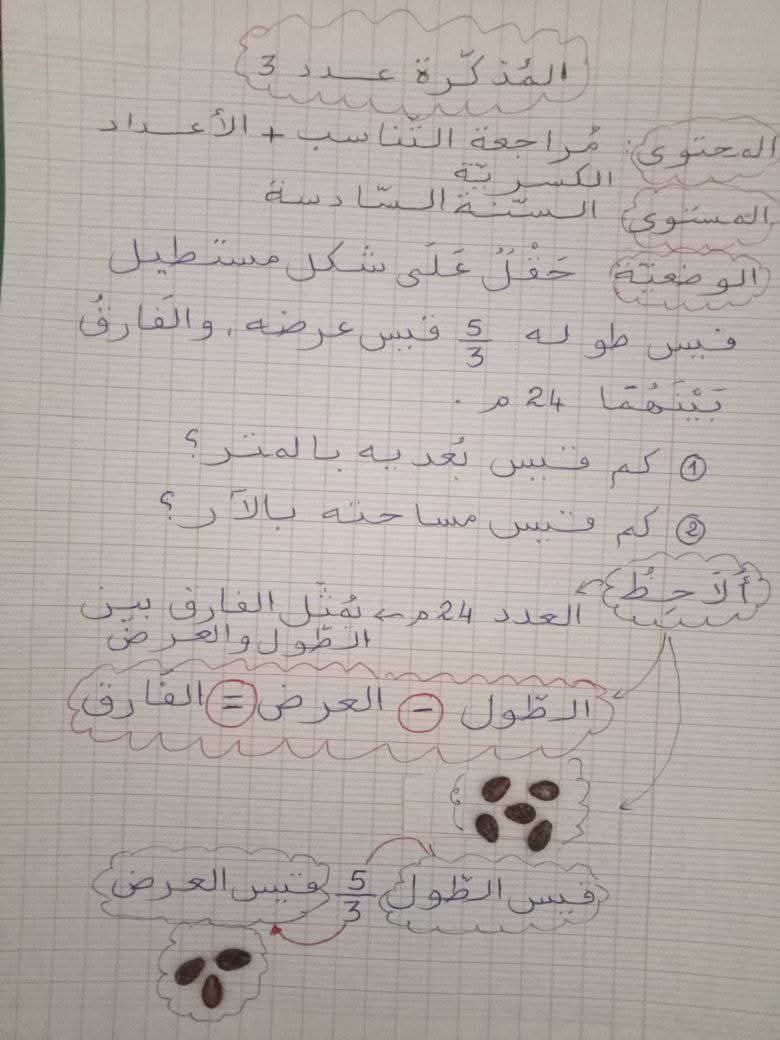 المُذكّرة عـدد 3
المحتوى: مُراجعة التّناسب + الأعـداد
الكسريّة
المستوى السّنة السّادسة
الوضعيّة حَقْلٌ عَلَى شكل مستطيل
قيس طوله 5/3 قيس عرضه، والفَارقُ
بَيْنَهُمَا 24 م.
① كم قيس بُعديه بالمتر؟
② كم قيس مساحته بالآر؟
أُلَاحِظُ العدد 24 م ← يُمثّل الفارق بين
الطّول والعرض
الطّول - العرض = الفَارق
قيس الطّول 5/3 قيس العرض